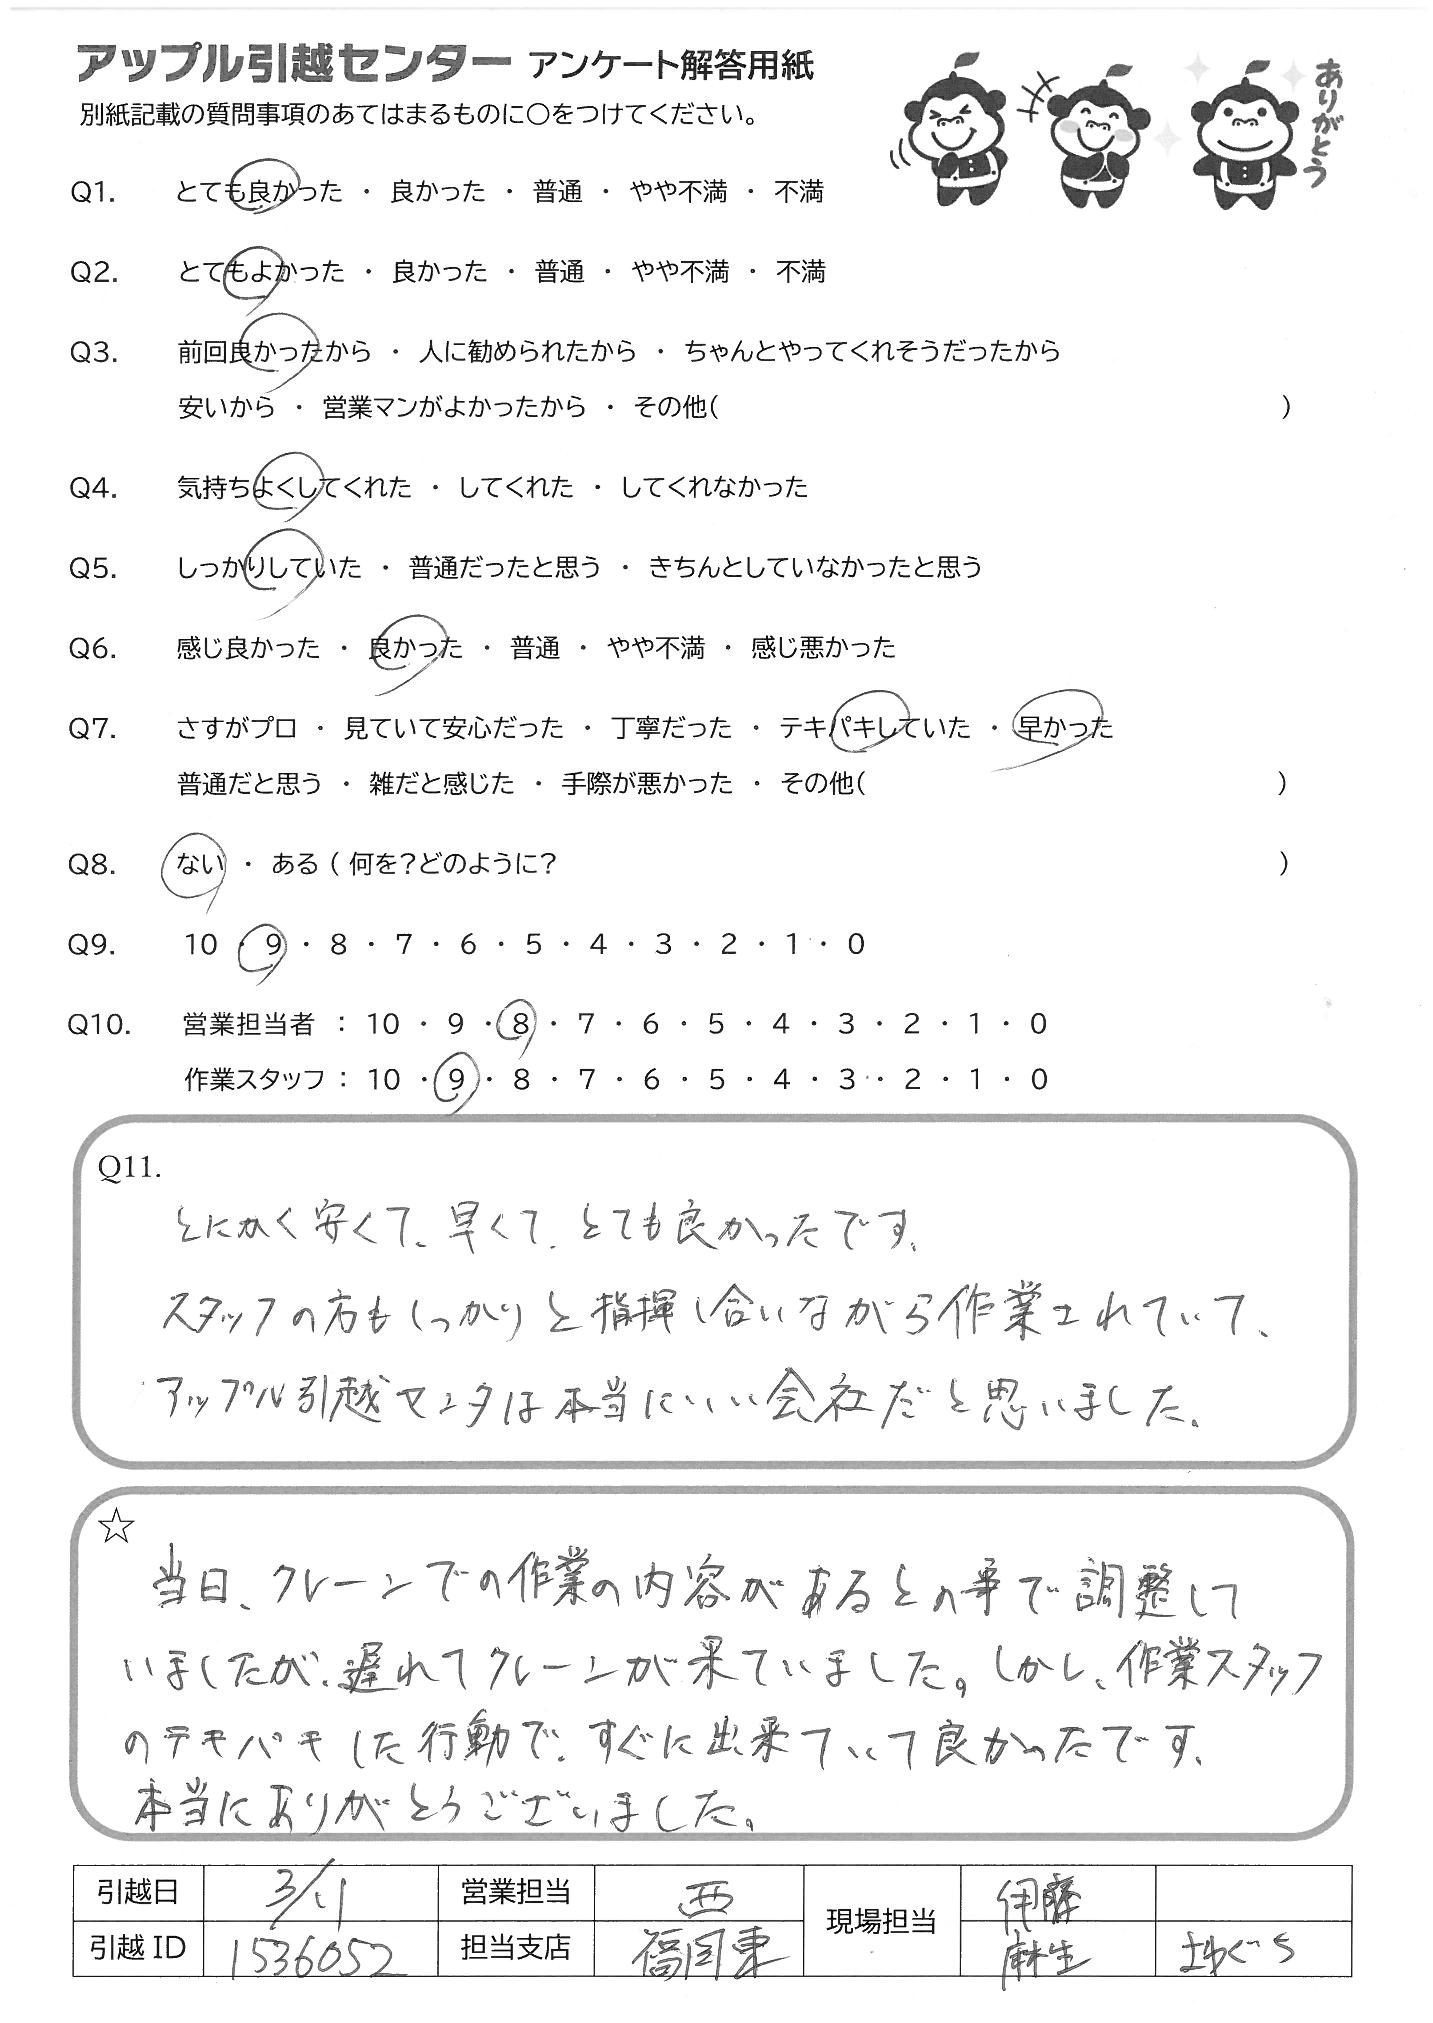 アップル引越センター アンケート解答用紙
ありがとう
別紙記載の質問事項のあてはまるものに○をつけてください。
Q1. とても良かった ・ 良かった ・ 普通 ・ やや不満 ・ 不満
Q2. とてもよかった ・ 良かった ・ 普通 ・ やや不満 ・ 不満
Q3. 前回良かったから ・ 人に勧められたから ・ ちゃんとやってくれそうだったから
安いから ・ 営業マンがよかったから ・ その他( )
Q4. 気持ちよくしてくれた ・ してくれた ・ してくれなかった
Q5. しっかりしていた ・ 普通だったと思う ・ きちんとしていなかったと思う
Q6. 感じ良かった ・ 良かった ・ 普通 ・ やや不満 ・ 感じ悪かった
Q7. さすがプロ ・ 見ていて安心だった ・ 丁寧だった ・ テキパキしていた ・ 早かった
普通だと思う ・ 雑だと感じた ・ 手際が悪かった ・ その他( )
Q8. ない ・ ある ( 何を?どのように? )
Q9. 10 ・ 9 ・ 8 ・ 7 ・ 6 ・ 5 ・ 4 ・ 3 ・ 2 ・ 1 ・ 0
Q10. 営業担当者 : 10 ・ 9 ・ 8 ・ 7 ・ 6 ・ 5 ・ 4 ・ 3 ・ 2 ・ 1 ・ 0
作業スタッフ : 10 ・ 9 ・ 8 ・ 7 ・ 6 ・ 5 ・ 4 ・ 3 ・ 2 ・ 1 ・ 0
Q11.
とにかく安くて、早くて、とても良かったです、
スタッフの方もしっかりと指揮し合いながら作業されていて、
アップル引越センタは本当にいい会社だと思いました。
☆
当日、クレーンでの作業の内容があるとの事で調整して
いましたが、遅れてクレーンが来ていました。しかし、作業スタッフ
のテキパキした行動で、すぐに出来ていて良かったです、
本当にありがとうございました。
引越日 3/11 営業担当 西 現場担当 伊藤
引越ID 1536052 担当支店 福岡東 麻生